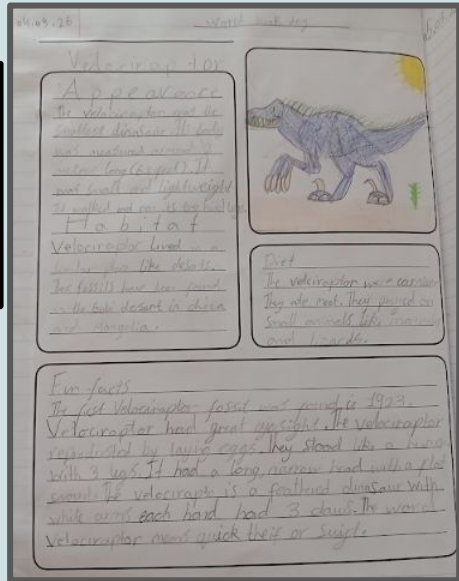 04.03.26
World book day
Velociraptor
Appearance
The velociraptor was the
smallest dinosaur. It body
was measured around 2
long (6 feet). It
was small and lightweight
It walked and ran its two hind legs
Habitat
Velociraptor lived in a
place like deserts.
The fossils have been found
in the Gobi desert in china
and Mongolia.
Diet
The velociraptor were
They ate meat. They preyed on
small animals like
and lizards.
Fun facts
The first Velociraptor fossil was found in 1923.
Velociraptor had great eyesight. The velociraptor
reproduced by laying eggs. They stood like a
with 3 legs. It had a long, narrow head with a flat
snout. The velocirapto is a feathered dinosaur with
while arms each hand had 3 claws. The word
velociraptor means quick theif or swift.